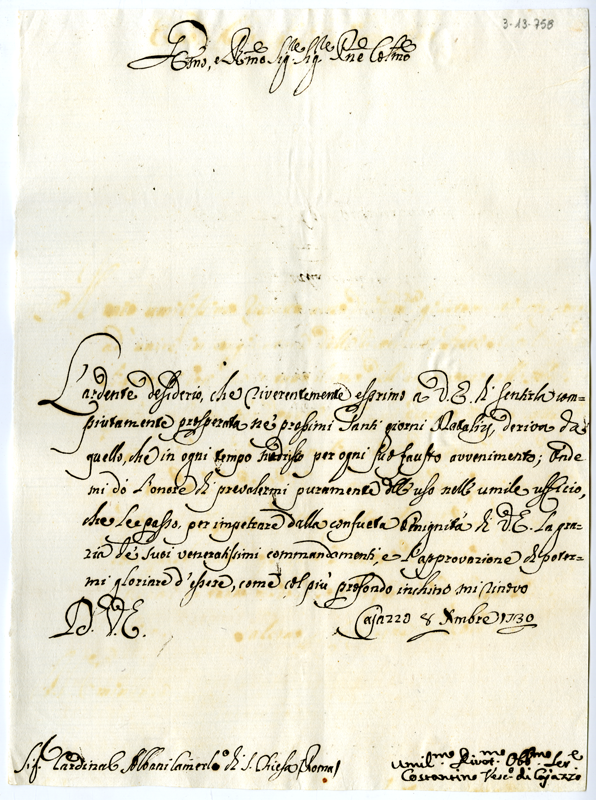 3-13-758
Emo, e Rmo Sig.re Sig.re Pne Colmo
L'ardente desiderio, che riverentemente esprimo a V.E. di sentirla com=
piutamente prosperata ne' prossimi Santi giorni Natalizj, deriva da
quello, che in ogni tempo nudrisco per ogni suo fausto avvenimento; Onde
mi dò l'onore di prevalermi puramente dell'uso nell'umile ufficio,
che Le passo, per impetrare dalla consueta benignità di V.E. la gra=
zia de' suoi veneratissimi commandamenti, e l'approvazione di poter=
mi gloriare d'essere, come col più profondo inchino mi rinovo
D. V. E. Cajazzo 8 Xmbre 1730
S.r Cardinal Albani Camerl.o di S. Chiesa (Roma)
Umil.mo Divot.mo Obb.mo Ser.e
Costantino Vesc.o di Cajazzo